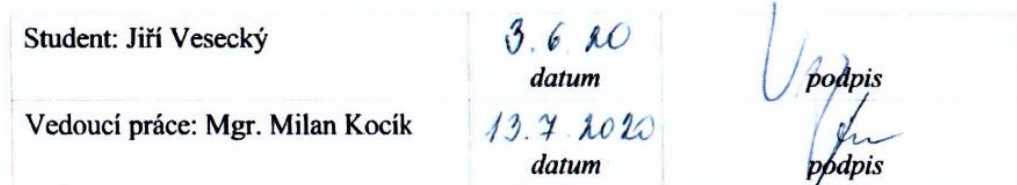 Student: Jiří Vesecký 3. 6. 20
datum podpis
Vedoucí práce: Mgr. Milan Kocík 13. 7. 2020
datum podpis